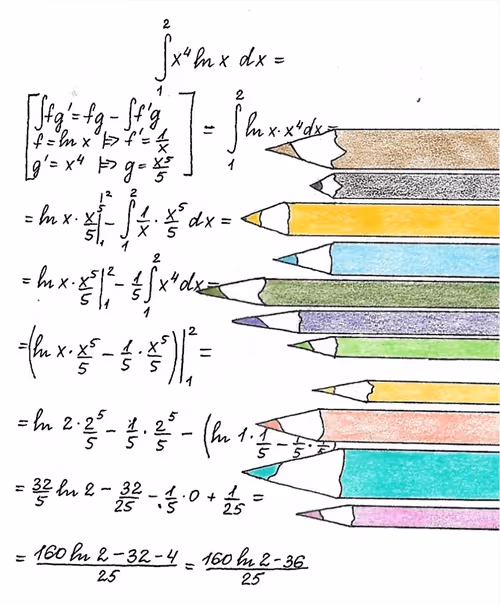 ∫₁² x⁴ ln x dx =
[∫fg' = fg − ∫f'g
f = ln x ⊨> f' = 1/x
g' = x⁴ ⊨> g = x⁵/5] = ∫₁² ln x · x⁴ dx =
= ln x · x⁵/5 |₁² − ∫₁² 1/x · x⁵/5 dx =
= ln x · x⁵/5 |₁² − 1/5 ∫₁² x⁴ dx =
= (ln x · x⁵/5 − 1/5 · x⁵/5) |₁² =
= ln 2 · 2⁵/5 − 1/5 · 2⁵/5 − (ln 1 · 1/5 − 1/5 ·
= 32/5 ln 2 − 32/25 − 1/5 · 0 + 1/25 =
= (160 ln 2 − 32 − 4)/25 = (160 ln 2 − 36)/25